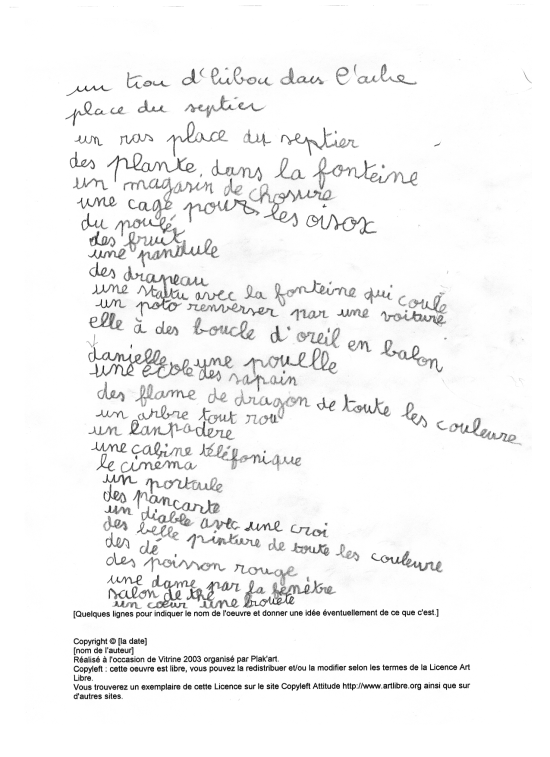 un trou d'hibou dans l'arbre
place du septier
un ras place du septier
des plante dans la fonteine
un magasin de chosure
une cage pour les oisox
du poulé
des fruit
une pandule
des drapeau
une statu avec la fonteine qui coule
un poto renverser par une voiture
elle à des boucle d'oreil en balon
danielle une pouelle
une école des sapain
des flame de dragon de toute les couleure
un arbre tout rou
un lanpadere
une cabine téléfonique
le cinéma
un portale
des pancarte
un diable avec une croi
des belle pinture de toute les couleure
des dé
des poisson rouge
une dame par la fenêtre
salon de thé
un cœur une brouète
[Quelques lignes pour indiquer le nom de l'oeuvre et donner une idée éventuellement de ce que c'est.]
Copyright © [la date]
[nom de l'auteur]
Réalisé à l'occasion de Vitrine 2003 organisé par Plak'art.
Copyleft : cette oeuvre est libre, vous pouvez la redistribuer et/ou la modifier selon les termes de la Licence Art
Libre.
Vous trouverez un exemplaire de cette Licence sur le site Copyleft Attitude http://www.artlibre.org ainsi que sur
d'autres sites.